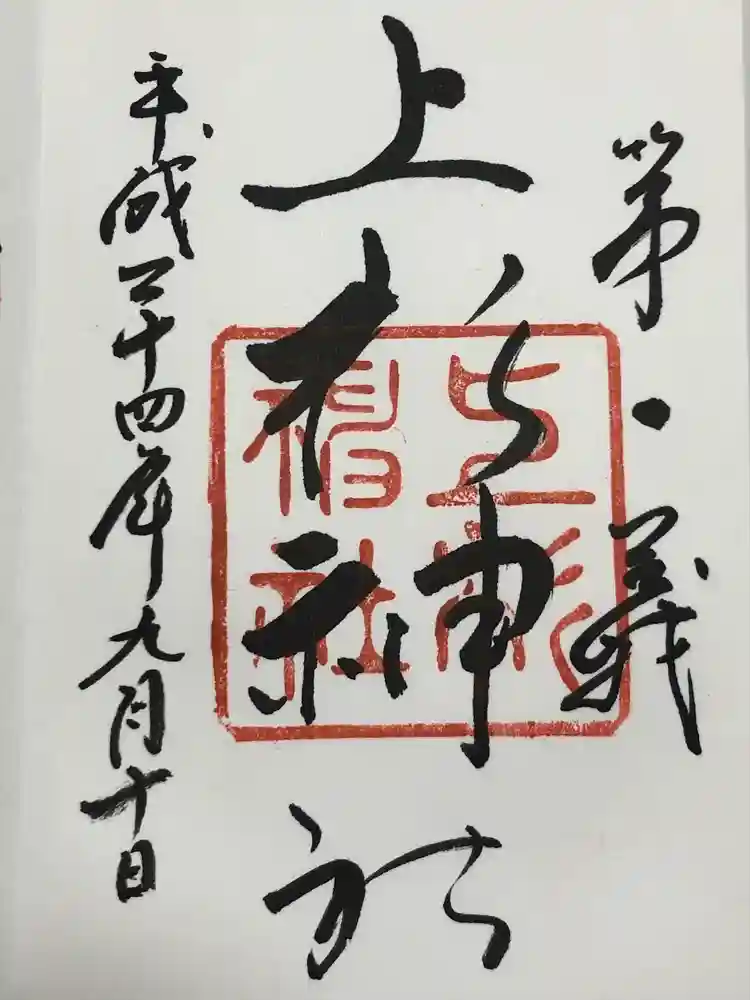 第一義
上杉神社
於
平成二十四年九月十日
上杉
神社